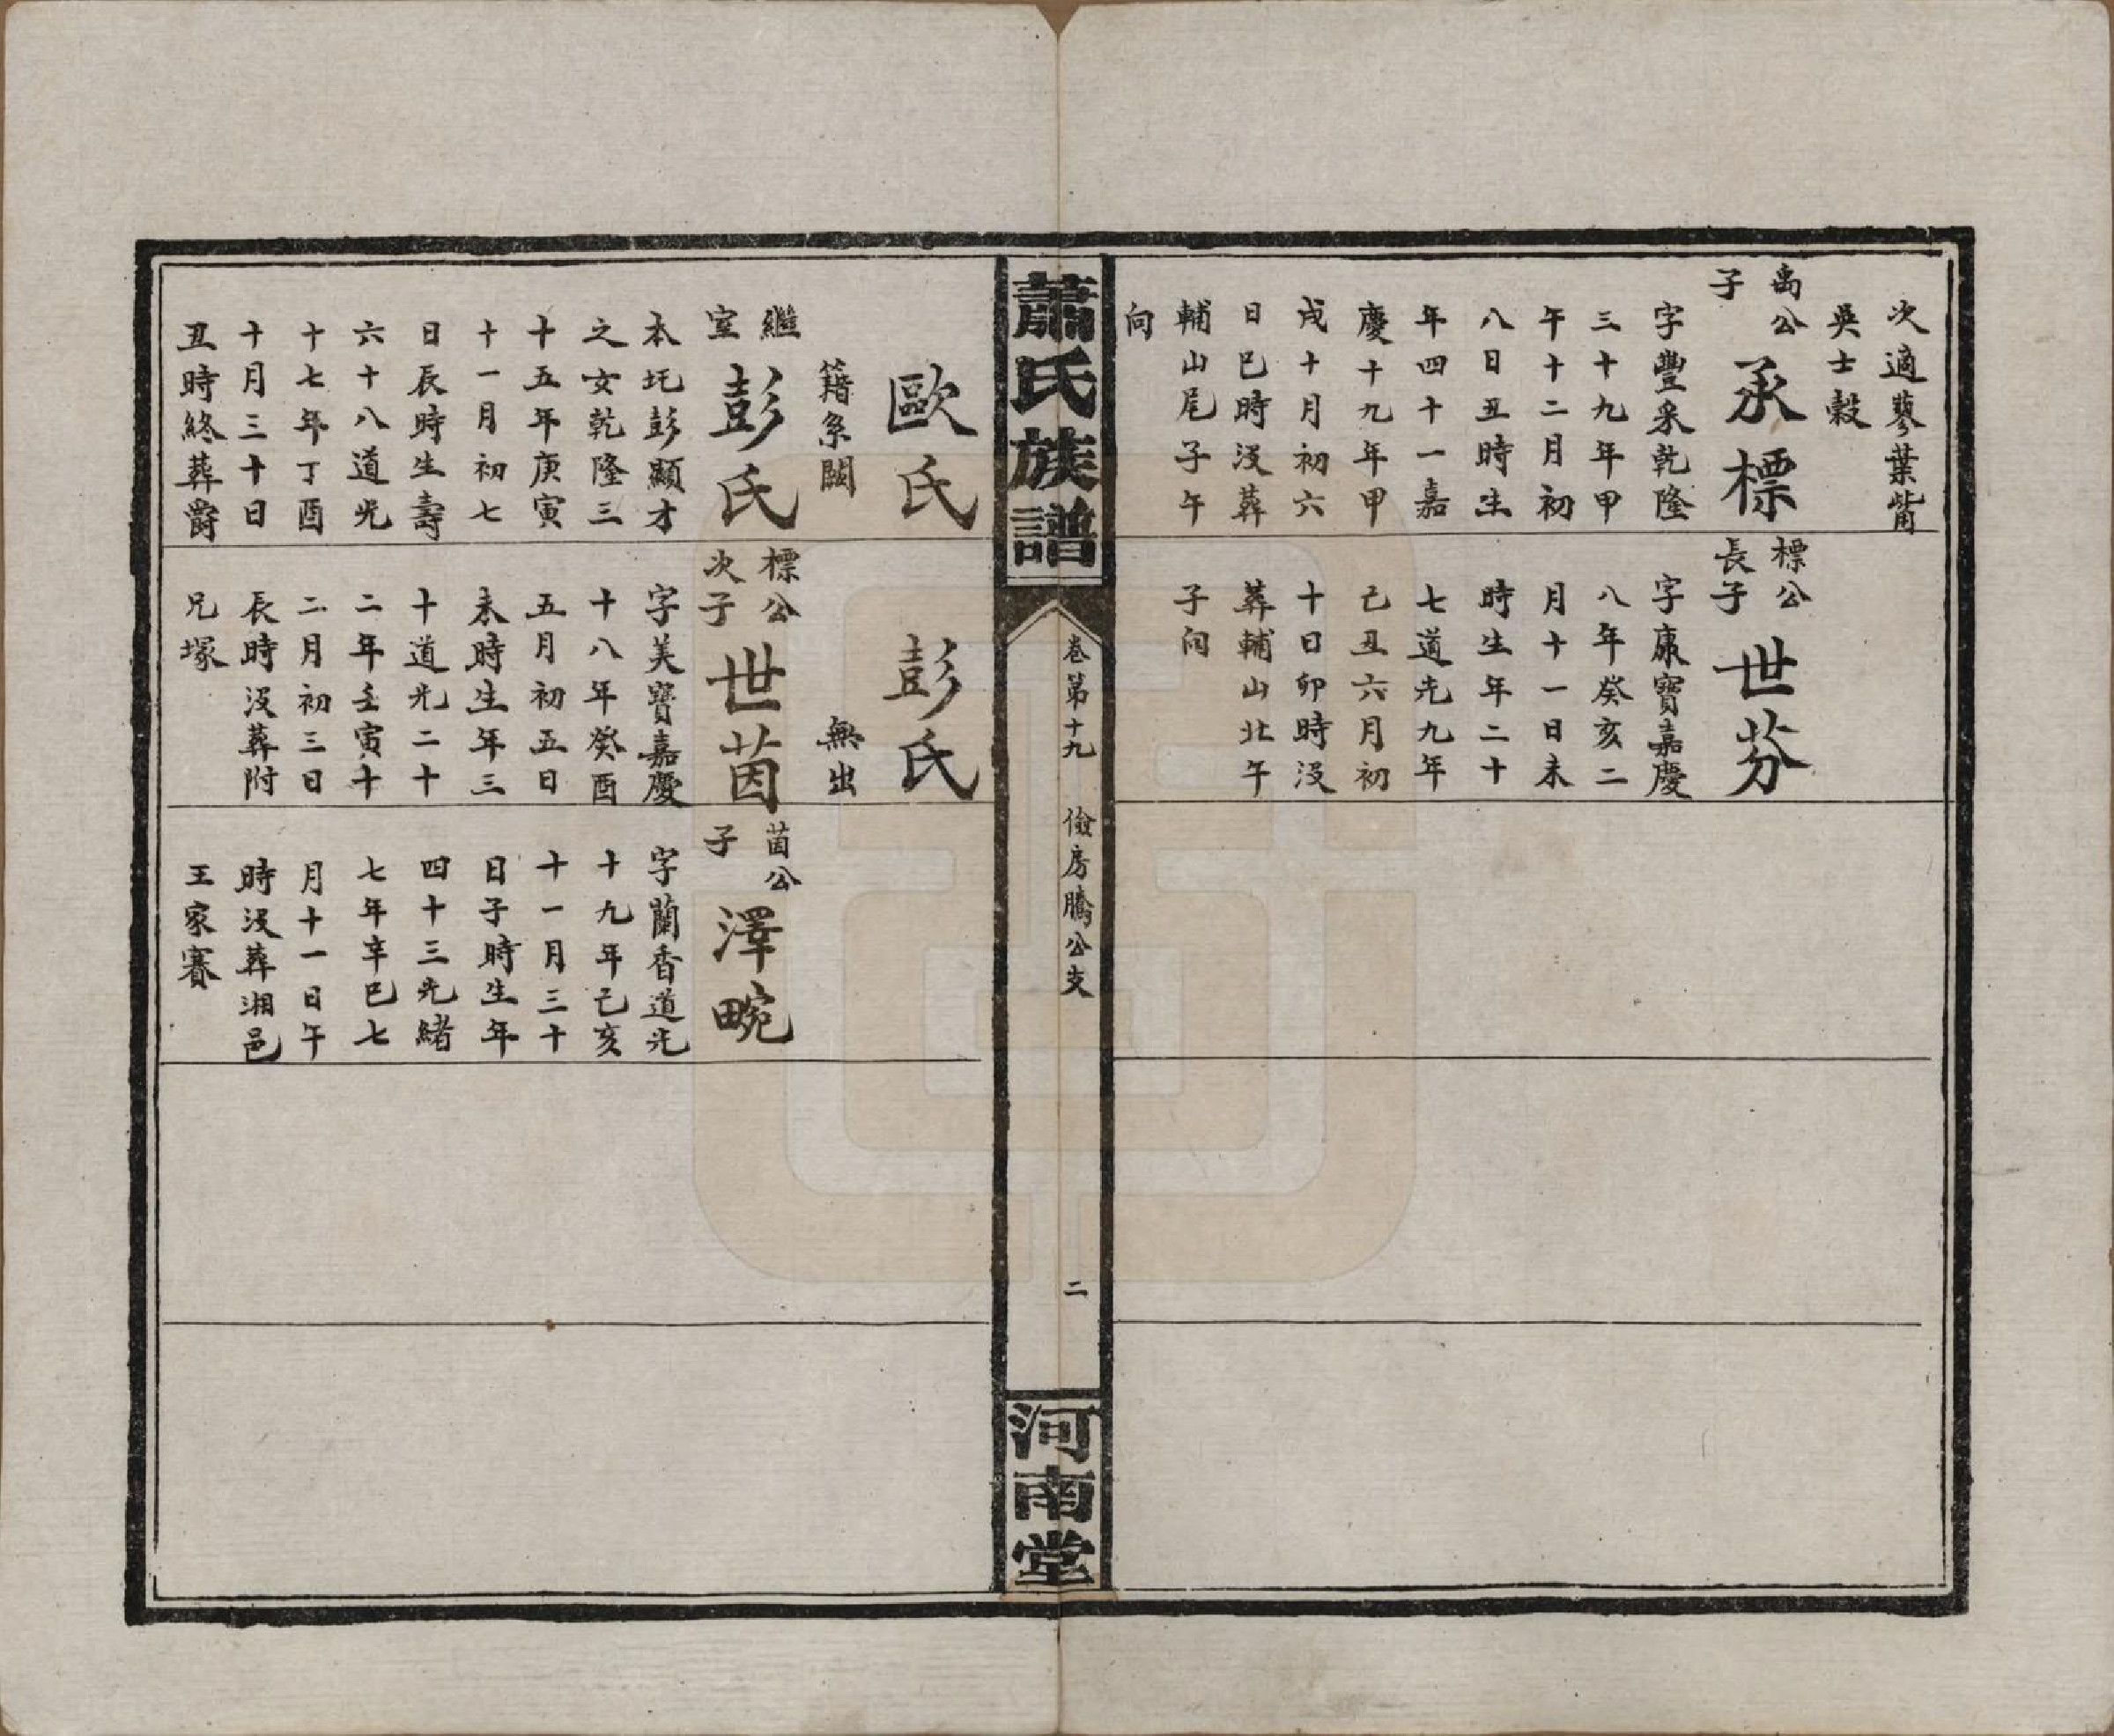 次適蓼葉觜
吳士穀
禹公
子
承標
字豐采乾隆
三十九年甲
午十二月初
八日丑時生
年四十一嘉
慶十九年甲
戌十月初六
日巳時沒葬
輔山尾子午
向
標公
長子
世芬
字康寶嘉慶
八年癸亥二
月十一日未
時生年二十
七道光九年
己丑六月初
十日卯時沒
葬輔山北午
子向
蕭氏族譜
卷第十九
儉房騰公支
二
河南堂
歐氏
籍系闕
繼
室
彭氏
本圫彭顯才
之女乾隆三
十五年庚寅
十一月初七
日辰時生壽
六十八道光
十七年丁酉
十月三十日
丑時終葬爵
彭氏
無出
標公
次子
世茵
字美寶嘉慶
十八年癸酉
五月初五日
未時生年三
十道光二十
二年壬寅十
二月初三日
長時沒葬附
兄塚
茵公
子
澤畹
字蘭香道光
十九年己亥
十一月三十
日子時生年
四十三光緒
七年辛巳七
月十一日午
時沒葬湘邑
王家賽